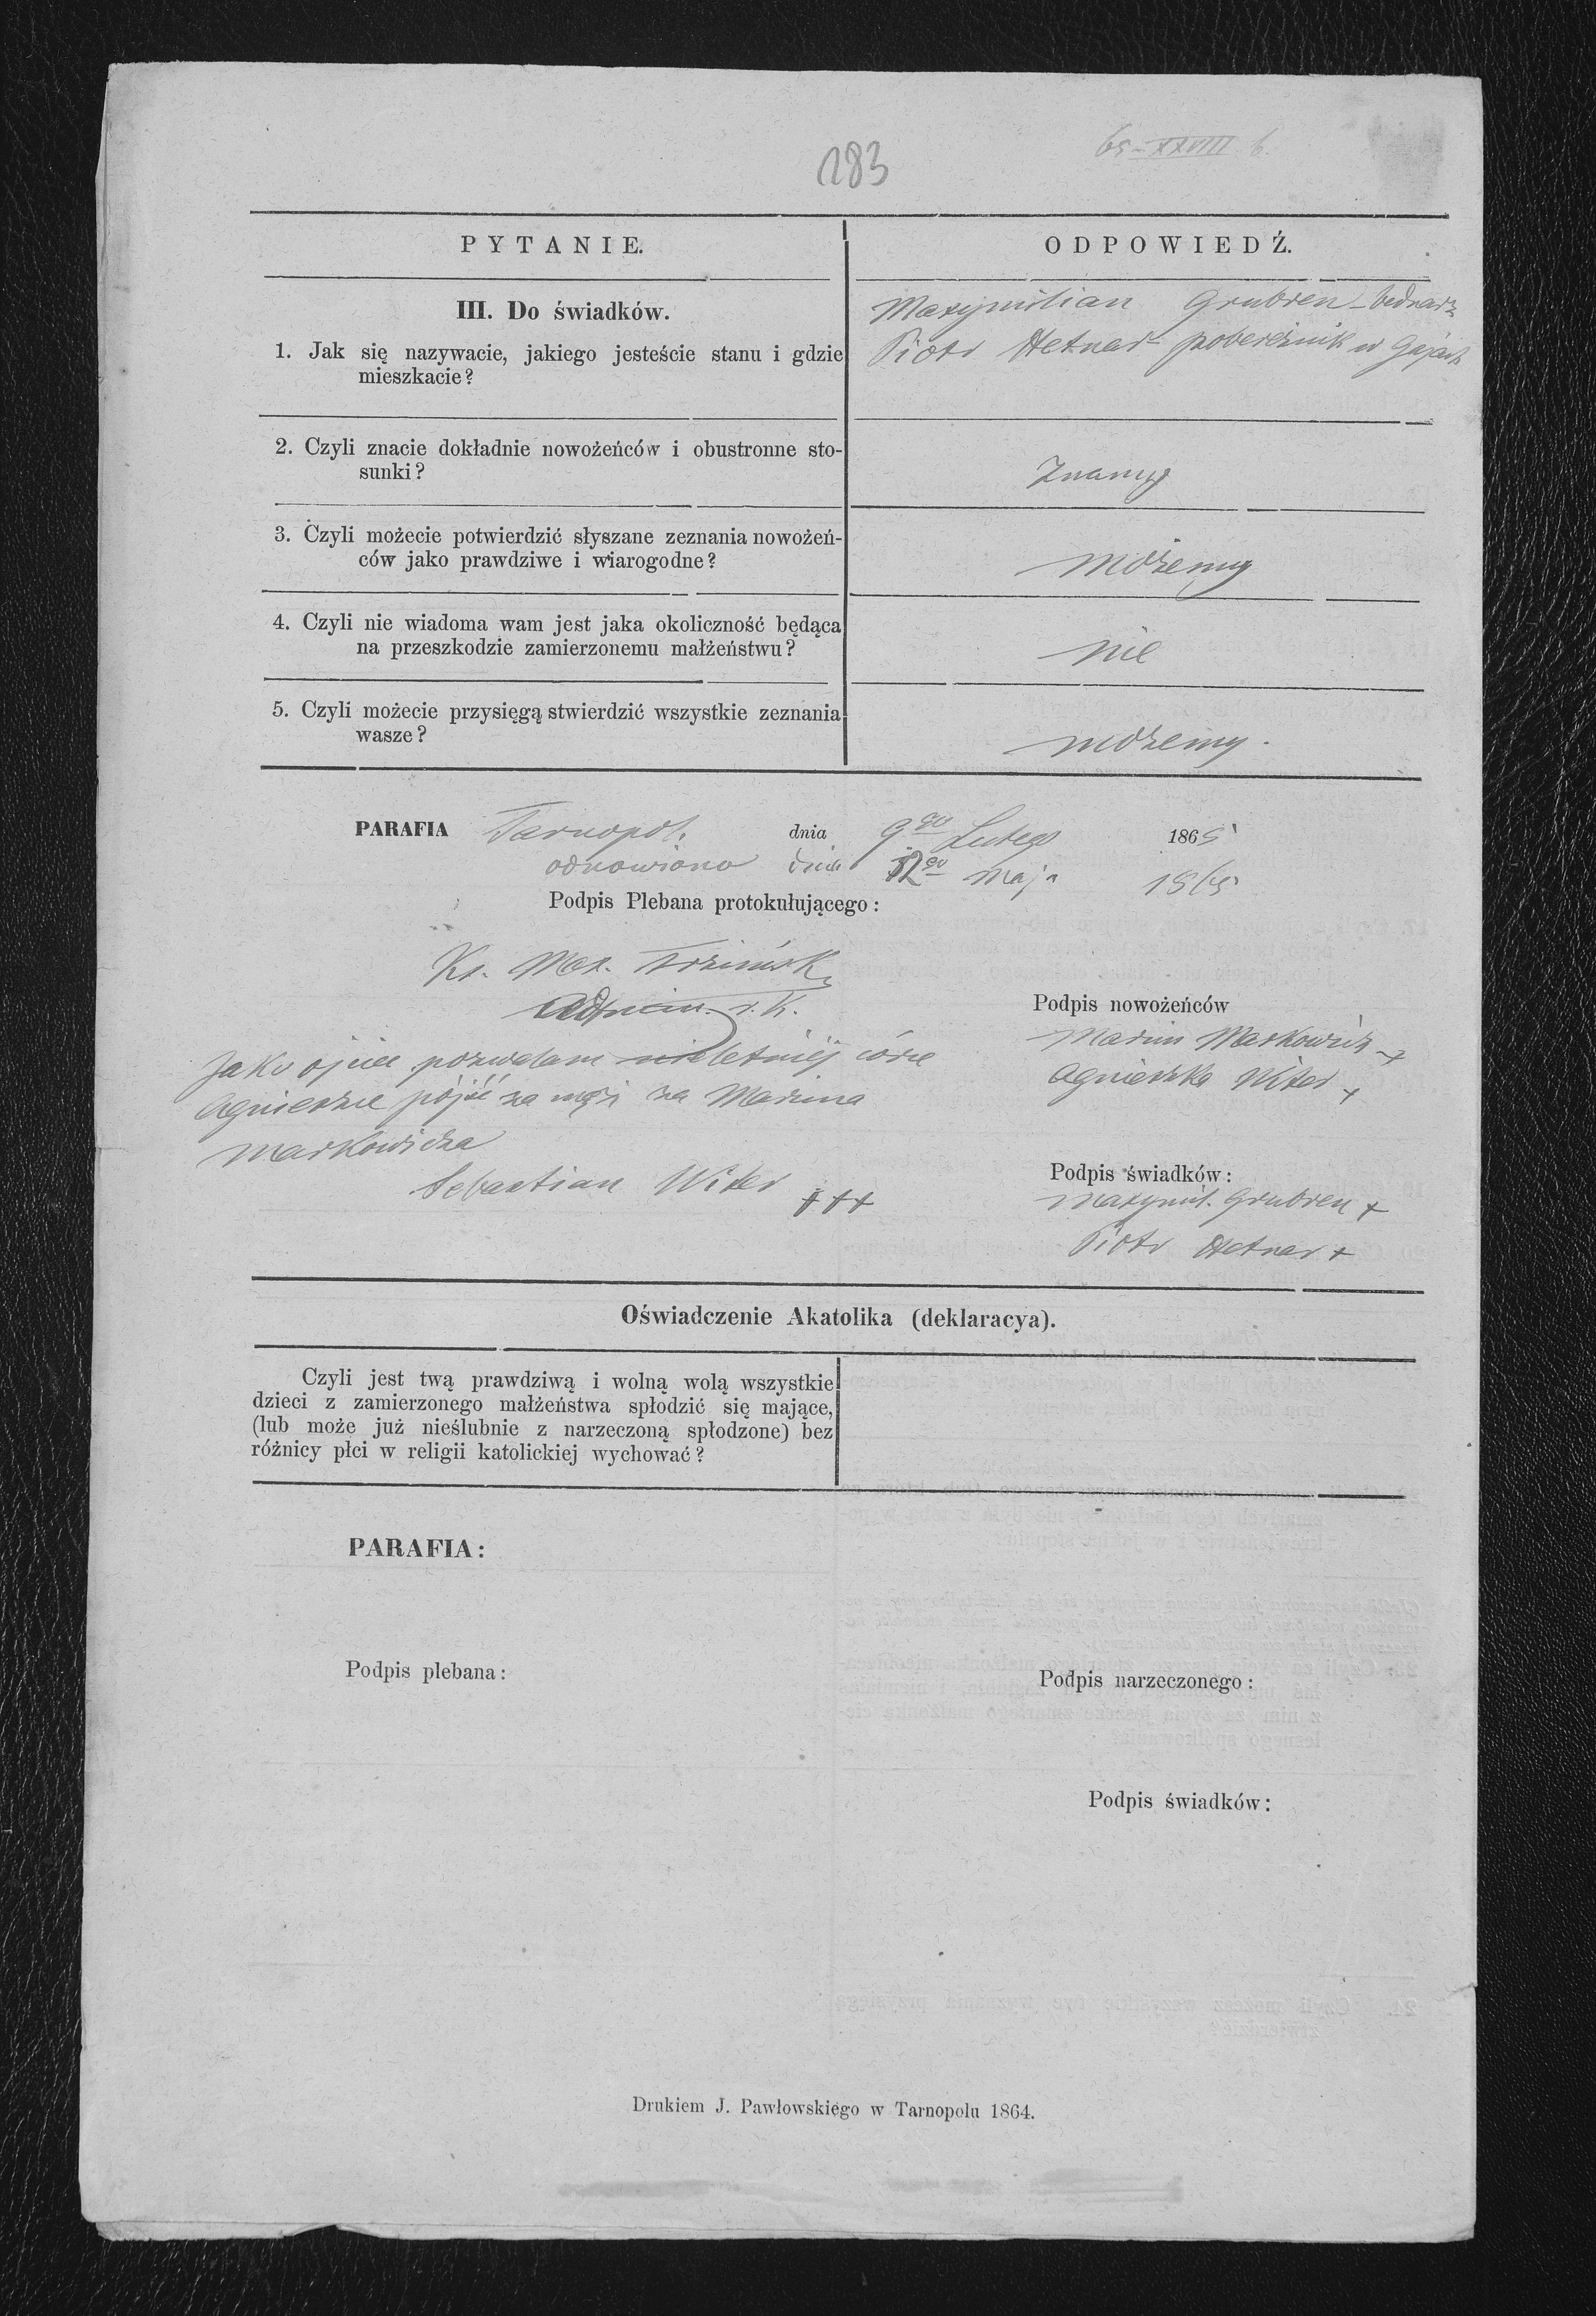 183
65-XXVIII b.
PYTANIE.
ODPOWIEDŹ.
III. Do świadków.
1. Jak się nazywacie, jakiego jesteście stanu i gdzie
mieszkacie?
Maxymilian Grubren - bednarz
Piotr Hetnar pobereżnik w Gajach
2. Czyli znacie dokładnie nowożeńców i obustronne sto-
sunki?
Znamy
3. Czyli możecie potwierdzić słyszane zeznania nowożeń-
ców jako prawdziwe i wiarogodne?
możemy
4. Czyli nie wiadoma wam jest jaka okoliczność będąca
na przeszkodzie zamierzonemu małżeństwu?
nie
5. Czyli możecie przysięgą stwierdzić wszystkie zeznania
wasze?
możemy.
PARAFIA Tarnopol. dnia 9go Lutego 1865
odnowiono dnia 12go Maja 1865
Podpis Plebana protokułującego:
Ks. Max.
Admin. r. k.
Podpis nowożeńców
Marcin Markowicz +
Agnieszka Witer +
Jako ojciec pozwalam nieletniéj córce
Agnieszce pójść za mąż za Marcina
Markowicza
Sebastian Witer +++
Podpis świadków:
Maxymil. Grubren +
Piotr Hetnar +
Oświadczenie Akatolika (deklaracya).
Czyli jest twą prawdziwą i wolną wolą wszystkie
dzieci z zamierzonego małżeństwa spłodzić się mające,
(lub może już nieślubnie z narzeczoną spłodzone) bez
różnicy płci w religii katolickiej wychować?
PARAFIA:
Podpis plebana:
Podpis narzeczonego:
Podpis świadków:
Drukiem J. Pawłowskiego w Tarnopolu 1864.